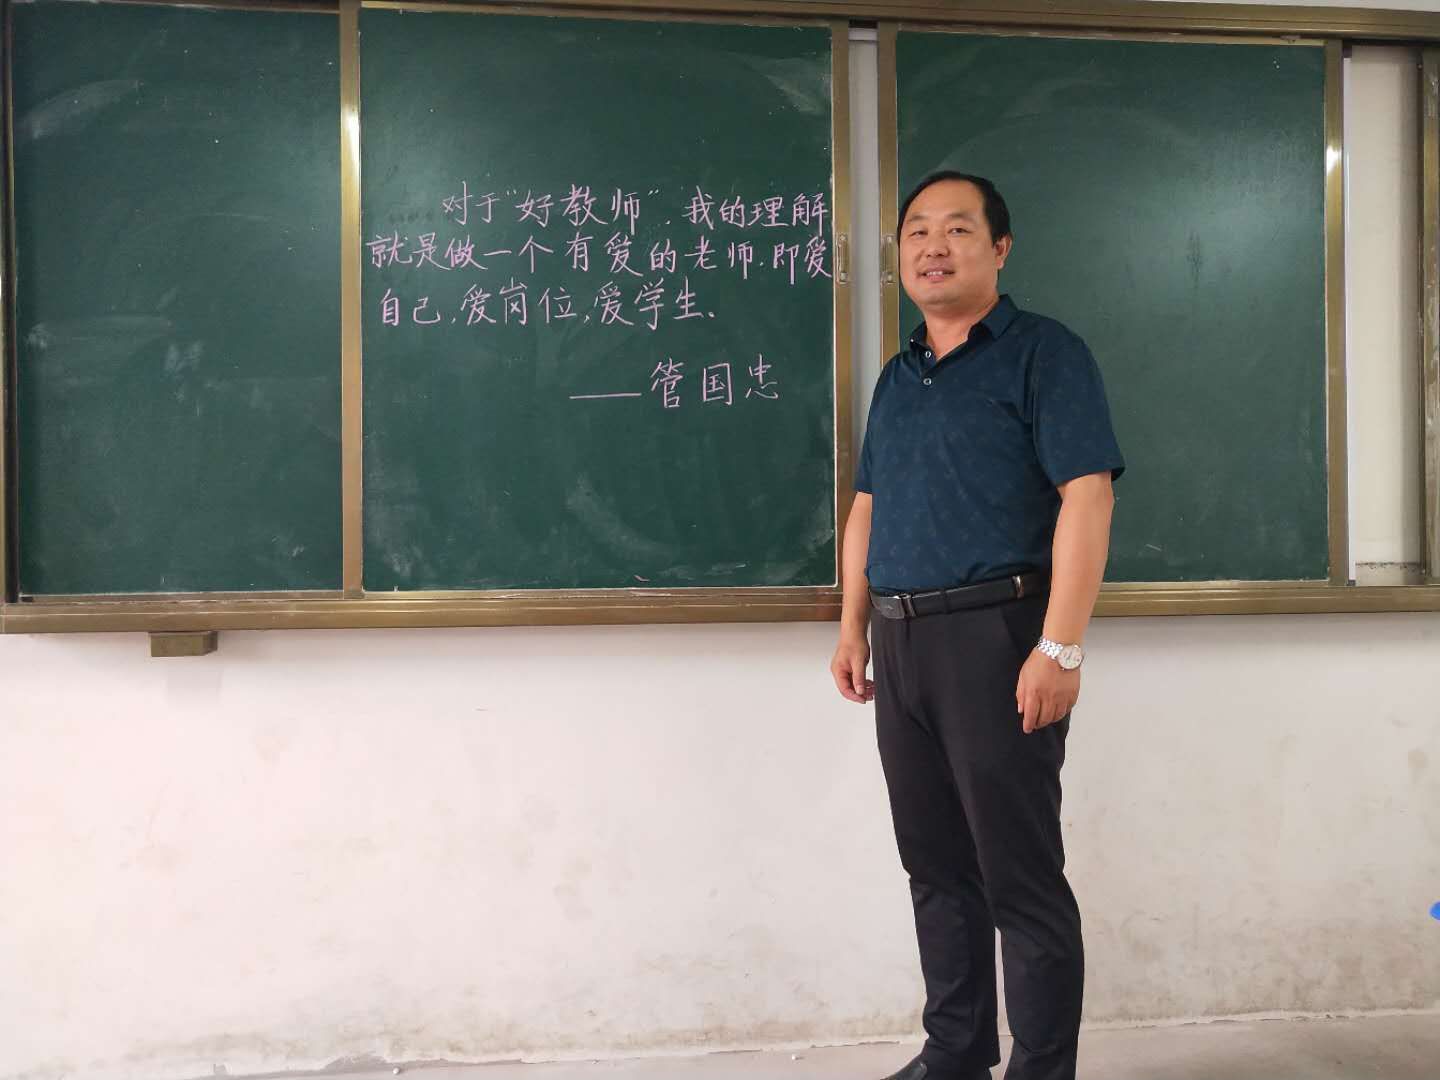 对于“好教师”，我的理解
就是做一个有爱的老师，即爱
自己，爱岗位，爱学生。
——管国忠